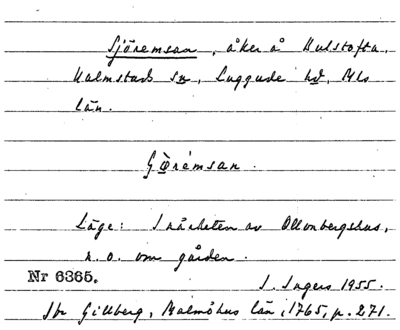 Sjöremsan, åker å Hulstofta,
Kalmstads sn, Luggude hd, Mls
län.
Läge: I närheten av Ollonbergshus,
n.o. om gården.
Nr 6365.
I. Ingers 1955.
Jfr Gillberg, Malmöhus län, 1765, p. 271.